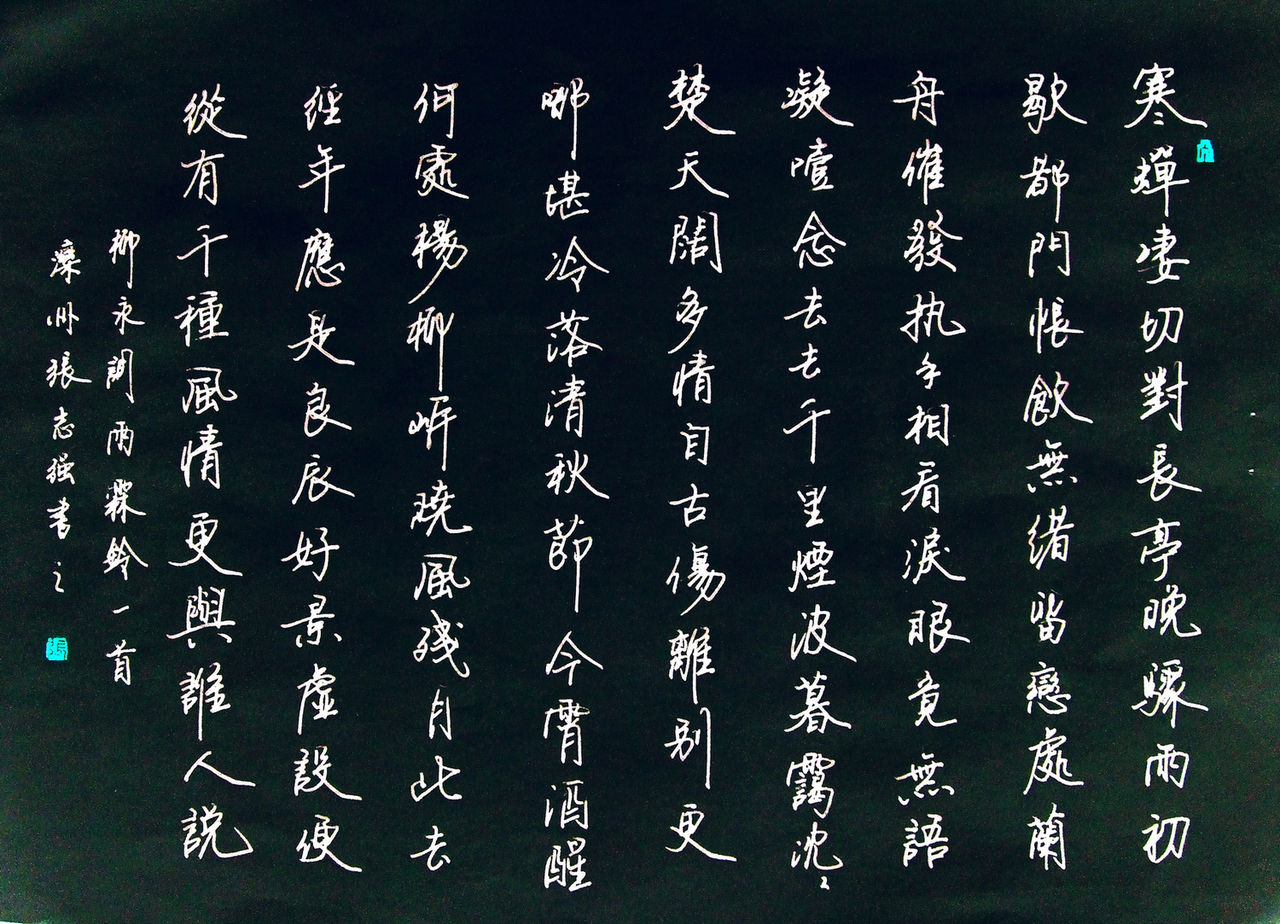 寒蟬凄切對長亭晚驟雨初
歇都門帳飲無緒留戀處蘭
舟催發执手相看淚眼竟無語
凝噎念去去千里煙波暮靄沈〻
楚天闊多情自古傷離別更
哪堪冷落清秋節今霄酒醒
何處楊柳岍曉風殘月此去
經年應是良辰好景虛設便
從有千種風情更與誰人説
柳永詞雨霖鈴一首
州張志强書之